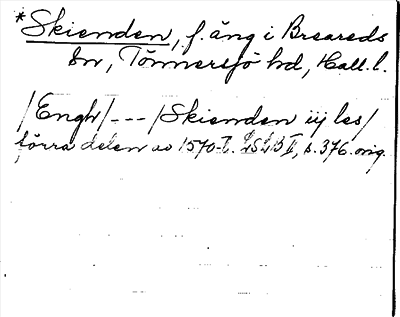 *Skienden, f. äng i Breareds
sn, Tönnersjö hd, Hall. l.
/Engh/---/Skienden iij les/
förra delen av 1570-t. LSLB II, s. 376. orig.